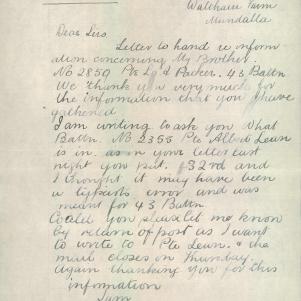 Walthare Farm
Mundalla
Dear Sirs
Letter to hand re inform
ation concerning My Brother.
No 2850 Pte L. J. Packer. 43 Battn
We thank you very much for
the information that you have
gathered
I am writing to ask you What
Battn. No 2355 Pte Albert Leun
is in. as in your letter last
night you put 32nd and
I thought it may have been
a typists error and was
meant for 43 Battn
Could you please let me know
by return of post as I want
to write to Pte Leun. & the
mail closes on Thursday.
Again thanking you for this
information
I am